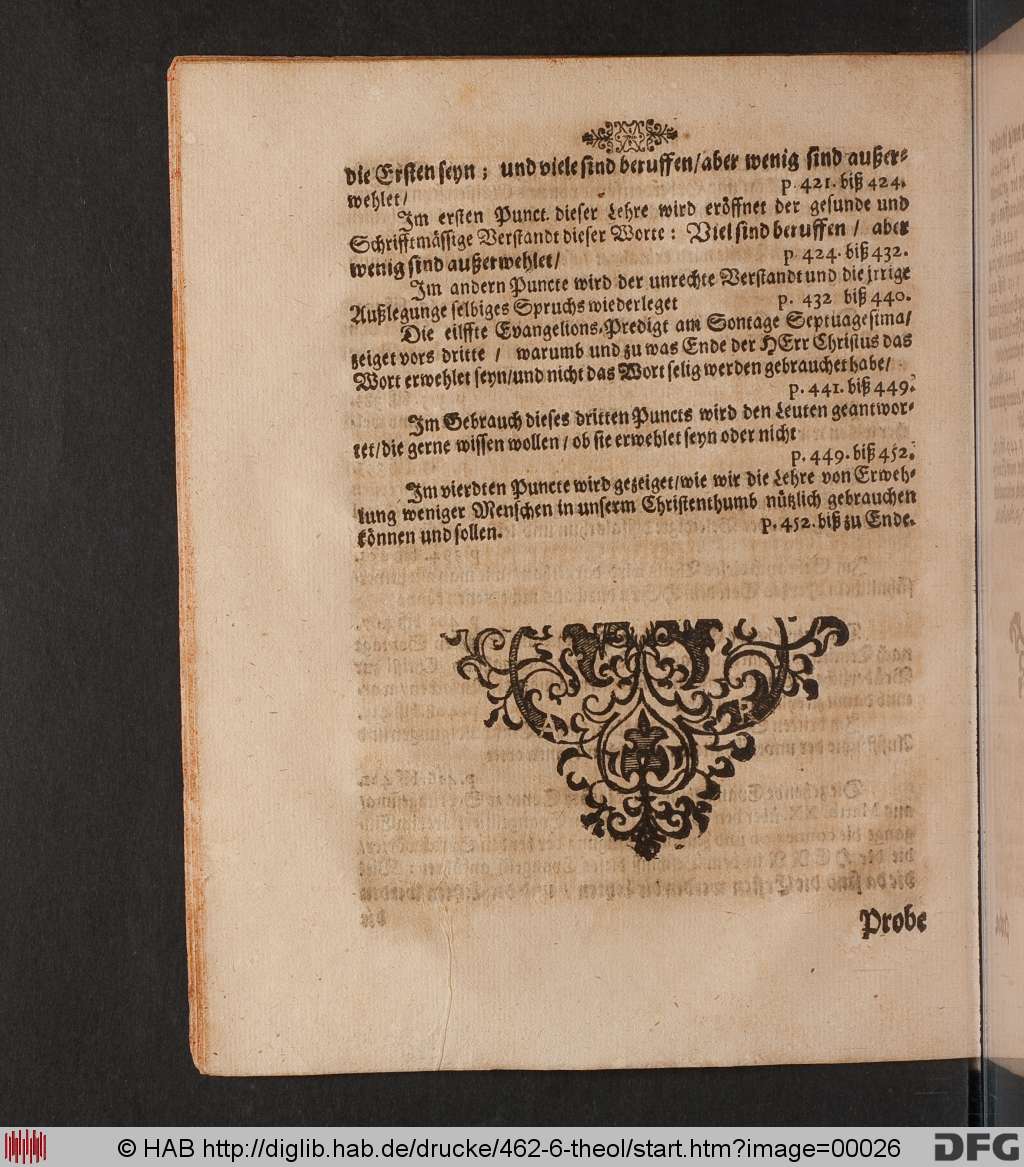 die Ersten seyn; und viele sind beruffen/aber wenig sind außer-
wehlet/ p. 421. biß 424.
Im ersten Punct. dieser Lehre wird eröffnet der gesunde und
Schrifftmässige Verstandt dieser Worte: Viel sind beruffen / aber
wenig sind außerwehlet/ p 424. biß 432.
Im andern Puncte wird der unrechte Verstandt und die jrrige
Außlegunge selbiges Spruchs wiederleget p. 432 biß 440.
Die eilffte Evangelions-Predigt am Sontage Septuagesima/
zeiget vors dritte / warumb und zu was Ende der HErr Christus das
Wort erwehlet seyn/und nicht das Wort selig werden gebrauchet habe/
p. 441. biß 449.
Im Gebrauch dieses dritten Puncts wird den Leuten geantwor-
tet/die gerne wissen wollen / ob sie erwehlet seyn oder nicht
p. 449. biß 452.
Im vierdten Puncte wird gezeiget/wie wir die Lehre von Erweh-
lung weniger Menschen in unserm Christenthumb nützlich gebrauchen
können und sollen. p. 452. biß zu Ende.
A R
Probe
© HAB http://diglib.hab.de/drucke/462-6-theol/start.htm?image=00026
DFG